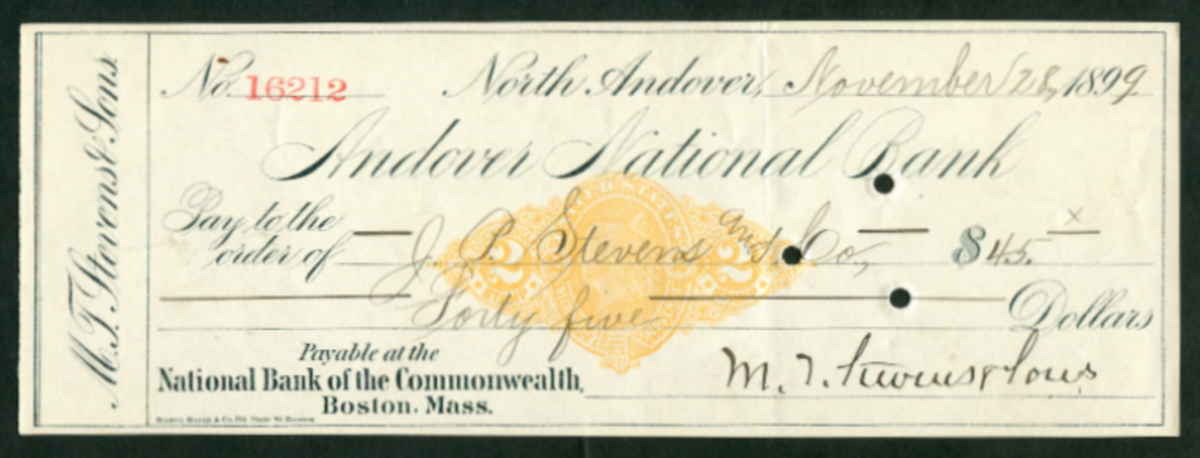 M.T. Stevens & Sons.
No. 16212 North Andover, November 28, 1899
Andover National Bank
Pay to the
order of J. P. Stevens and Co., $45. x
UNITED STATES
2 2
Forty five Dollars
Payable at the
National Bank of the Commonwealth,
Boston, Mass.
M. T. Stevens & Sons